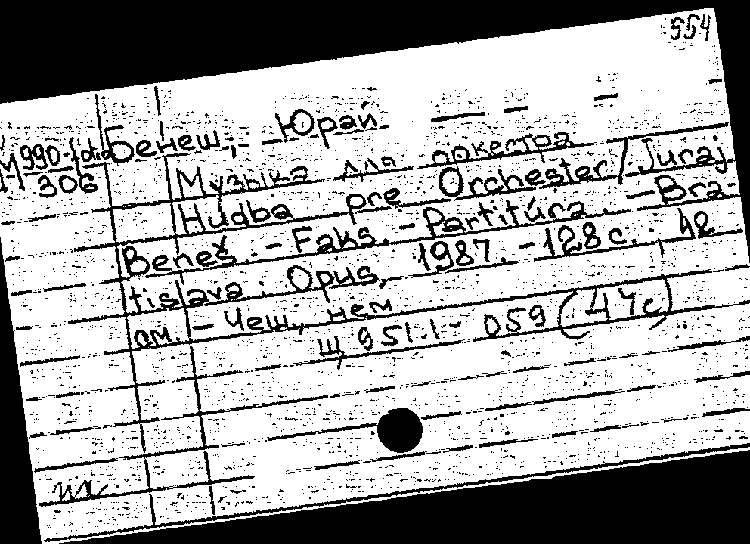 554
М 990-folio
306
Бенеш, Юрай
Музыка для оркестра
Hudba pre Orchester / Juraj
Beneš. - Faks. - Partitúra. - Bra-
tislava: Opus, 1987. - 128 с.: 42
см. - Чеш., нем
Щ 951.1- 059 (4Чс)